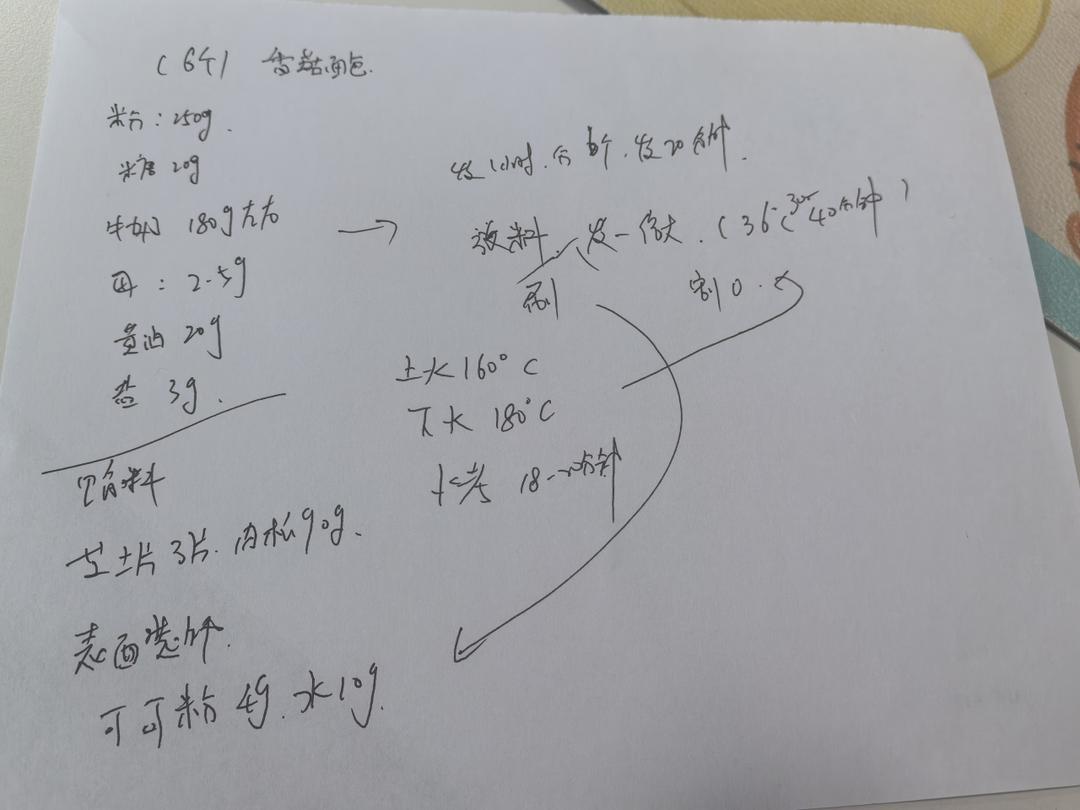 (6个) 香菇面包.
粉: 250g.
糖 20g
牛奶 180g左右
母: 2.5g
黄油 20g
盐 3g.
馅料
芝士片 3片. 肉松90g.
表面装饰.
可可粉 4g. 水10g.
→ 发1小时. 分6个. 发20分钟.
放料. 发一倍大. (36℃ 30-40分钟)
刷
割口.
上火160°C
下火 180°C
烤 18-20分钟